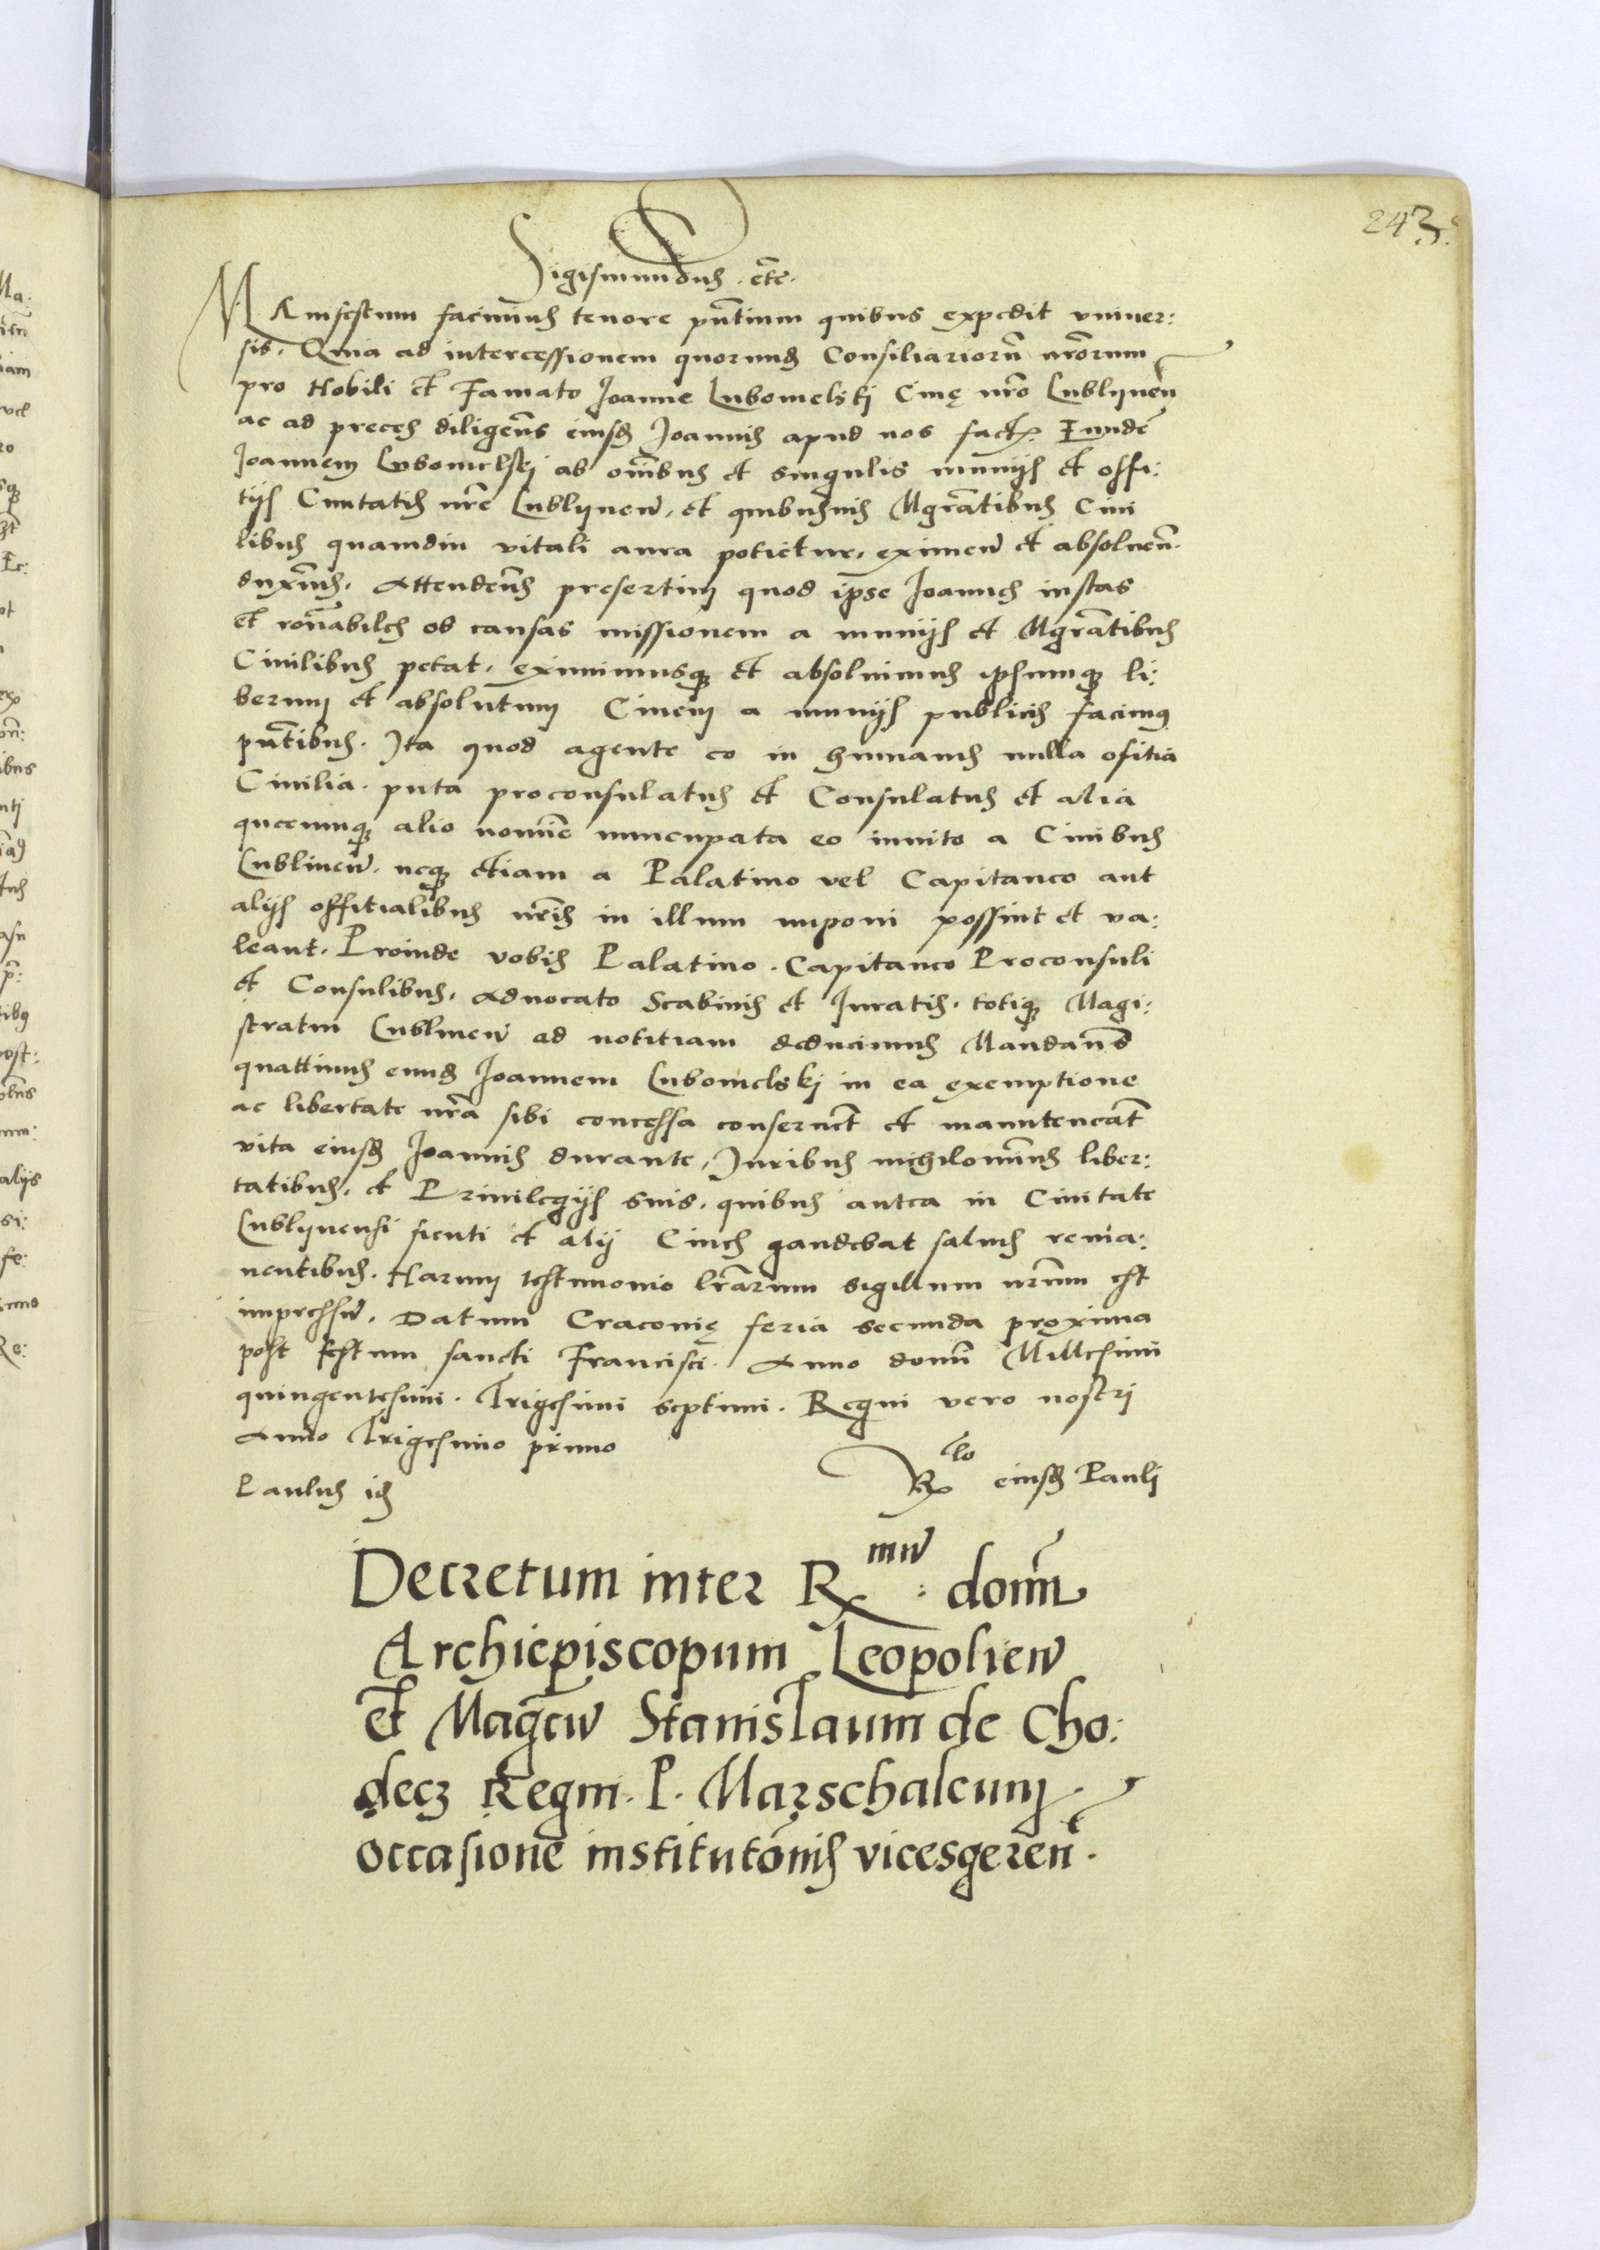 243.
Sigismundus . etc.
MAnifestum facimus tenore pñtium quibus expedit vniuer:
sis. Quia ad intercessionem quorund Consiliariorũ nrõrum
pro Nobili et Famato Joanne Lubomelski Ciuę nrõ Lublynen̄
ac ad preces diligen̄s eiusd Joannis apud nos fact. Eundē
Joannem Lubomelskj ab om̄ibus et singulis munijs et offi:
tijs Ciuitatis nrē Lublynen̄, et quibusuis Mgrātibus Ciui
libus quamdiu vitali aura potietur, eximen̄ et absoluen̄.
duximus. Attenden̄s presertim quod ip̄se Joannes iustas
et rōnabiles ob causas missionem a munijs et Mgrātibus
Ciuilibus petat, eximimusq et absoluimus ipsumq li:
berum et absolutum Ciuem a munijs publicis facimus
pñtibus. Ita quod agente eo in humanis nulla ofitia
Ciuilia. puta proconsulatus et Consulatus et alia
quecumq alio nomīe nuncupata eo inuito a Ciuibus
Lublinen̄. neq etiam a Palatino vel Capitaneo aut
alijs offitialibus nrīs in illum imponi possint et va:
leant. Proinde vobis Palatino. Capitaneo Proconsuli
et Consulibus, Aduocato Scabinis et Juratis. totiq Magi:
stratui Lublinen̄ ad notitiam deducimus Mandan̄s
quattinus eund Joannem Lubomelskj in ea exemptione
ac libertate nrā sibi concessa conseruēt et manuteneāt
vita eiusd Joannis durante, Juribus nihilominus liber:
tatibus, et Priuilegijs suis. quibus antea in Ciuitate
Lublynensi sicuti et alij Ciues gaudebat saluis rema:
nentibus. Harum testimonio lrārum sigillum nrūm est
impressū. Datum Cracouię feria secunda proxima
post festum sancti Francisci. Anno domī Millesimi
quingentesimi. Trigesimi septimi. Regni vero nostrj
Anno Trigesimo primo
Paulus id
Rlo eiusd Paulj
Decretum inter Rmū : dom̄
Archiepiscopum Leopolien̄
et Magcū Stanislaum de Cho:
decz Regni. P. Marschalcum.
occasione institutōnis vicesgeren̄.